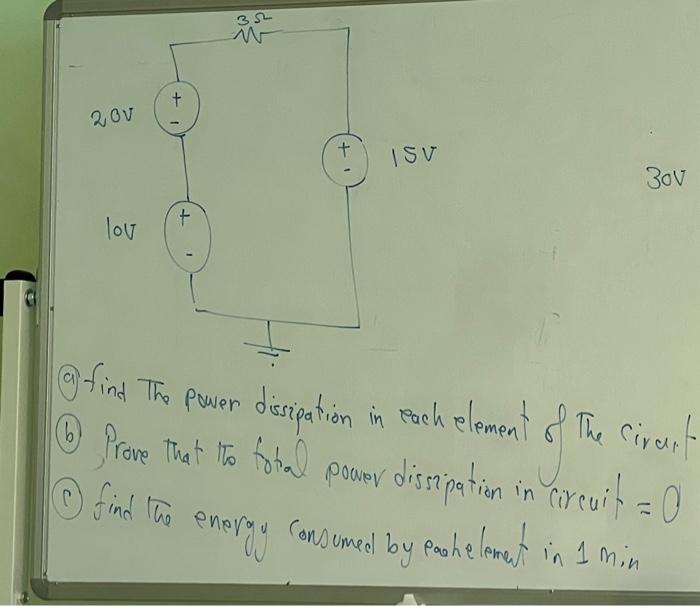 3Ω
+
-
20V
+
-
15V
30V
+
-
10V
(a) find The power dissipation in each element of The circuit
(b) Prove That the total power dissipation in circuit = 0
(c) find The energy consumed by each element in 1 min